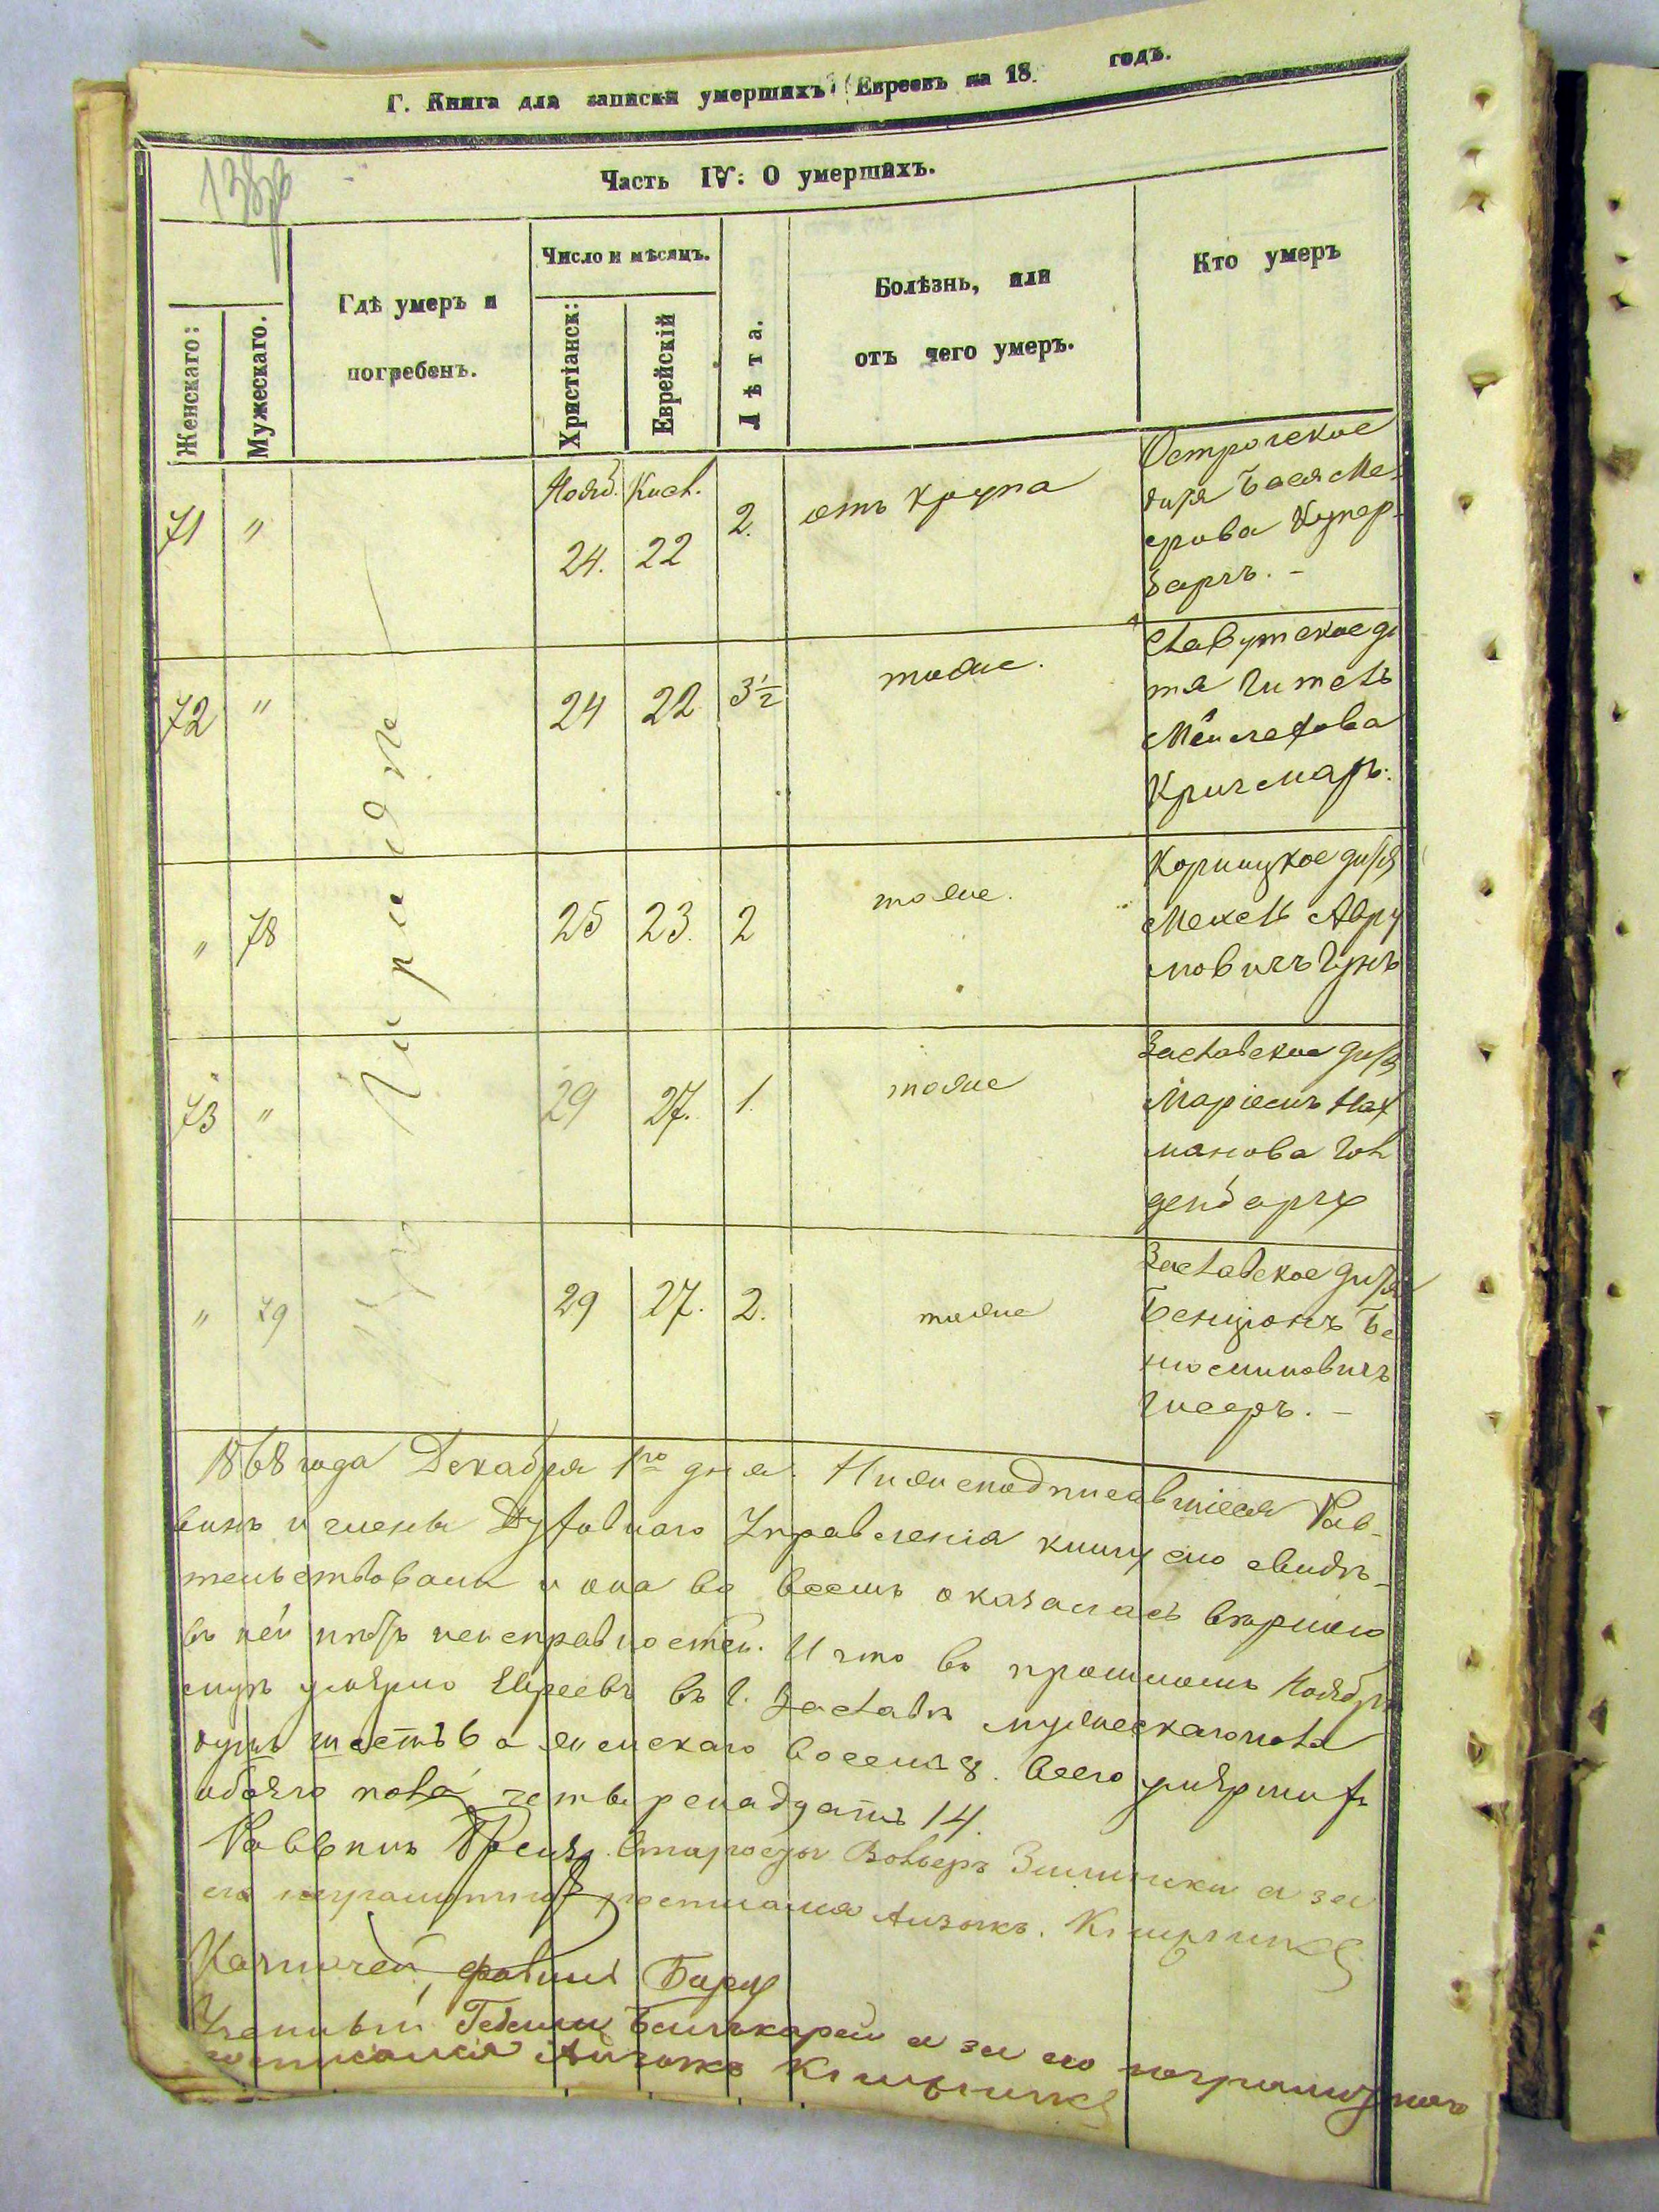 Г. Книга для записки умершихъ Евреевъ на 18 годъ.
138об
Часть IV: О умершихъ.
Женскаго:
Мужескаго.
Гдѣ умеръ и
погребенъ.
Число и мѣсяцъ.
Христіанск:
Еврейскій
Лѣта.
Болѣзнь, или
отъ чего умеръ.
Кто умеръ
71 " Нояб. Кисл. 24. 22 2. отъ крупа
Острогское
дитя Бася Ме-
ерова Купер-
72 " 24 22 3½ тоже.
Славутское ди
тя Гитель
Кричмаръ.
" 78 25 23. 2 тоже.
Корицкое дитя
Мехель Авру
мовичъ
73 " 29 27. 1. тоже
Заславское дитя
Маріемъ Нах
манова Гол
денбаргъ
" 79 29 27. 2. тоже
Заславское дитя
Бенціонъ Бе
ніоминовичъ
Гисеръ. –
1868 года Декабря 1го дня. Нижеподписавшіеся Рав-
винъ и члены Духовнаго Управленія книгу сію свидѣ-
тельствовали и она во всемъ оказалась вѣрною
въ ней нѣтъ неисправностей. И что въ прошломъ Ноябрѣ
умерло Евреевъ въ г. Заславѣ мужескаго пола
душъ шесть 6 а женскаго восемь 8. всего умершихъ
обоего пола четыренадцать 14.
Раввинъ Старосты Вольберъ а за
его неграмотного росписался Айзикъ
Казначей
Ученый Бешкарей а за его неграмотного
росписался Айзикъ